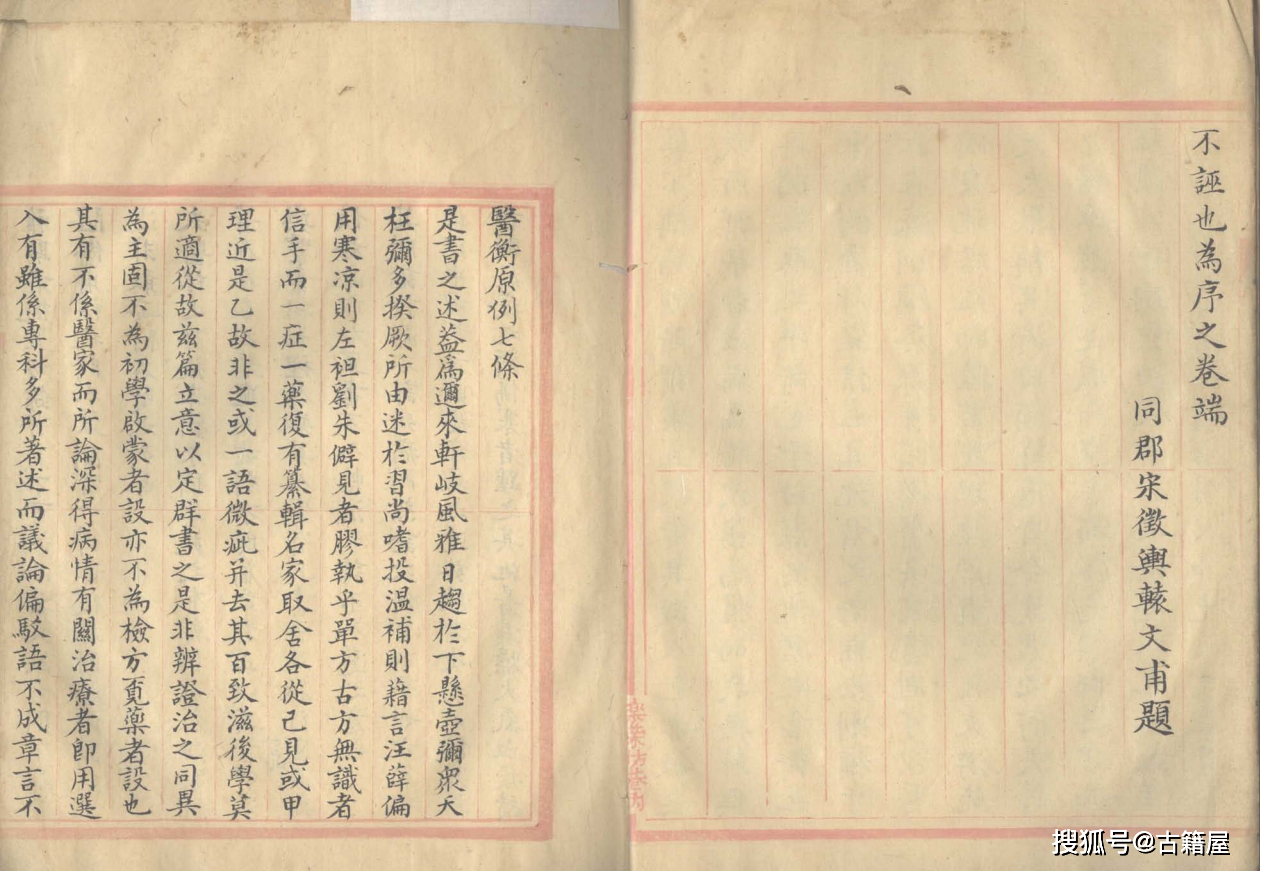 不誣也為序之卷端
同郡宋徵輿轅文甫題
醫衡原例七條
是書之述葢爲邇來軒岐風雅日趨於下懸壺彌衆夭
枉彌多揆厥所由迷於習尚嗜投溫補則藉言汪薛偏
用寒凉則左袒劉朱僻見者膠執乎單方古方無識者
信手而一症一藥復有纂輯名家取舍各從己見或甲
理近是乙故非之或一語微疵并去其百致滋後學莫
所適從故茲篇立意以定群書之是非辨證治之同異
為主固不為初學啟蒙者設亦不為檢方覓藥者設也
其有不係醫家而所論深得病情有關治療者卽用選
入有雖係專科多所著述而議論偏駁語不成章言不
搜狐号@古籍屋